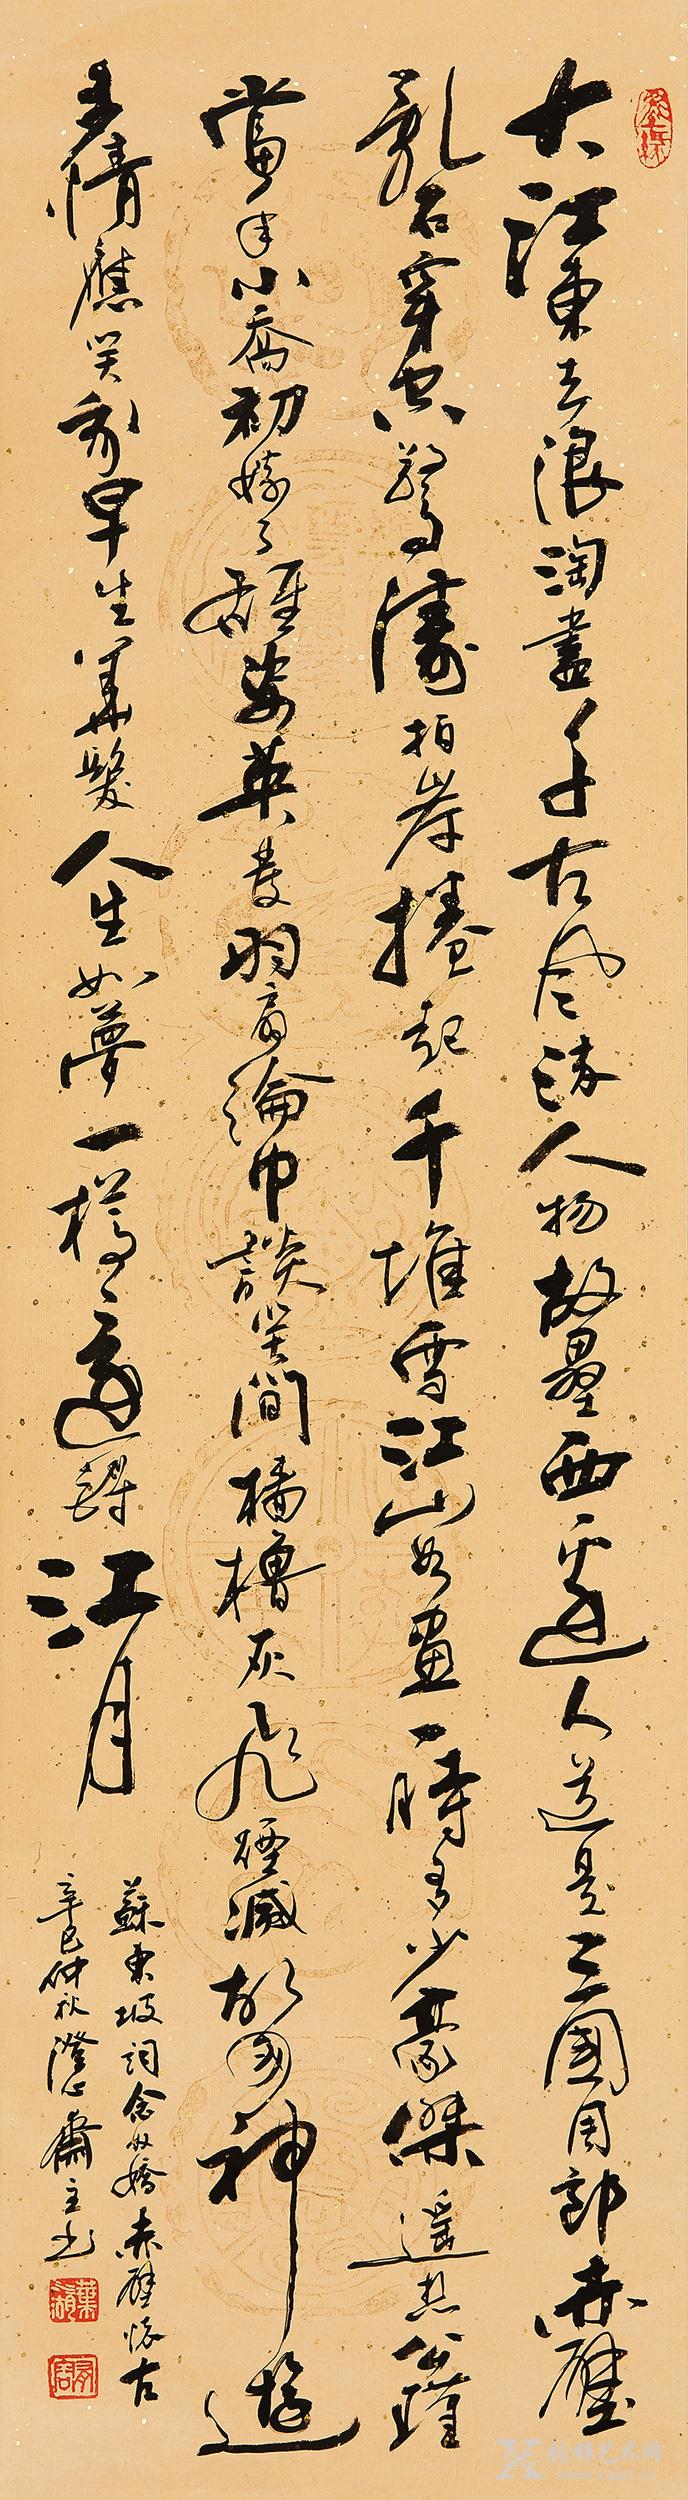 大江東去浪淘盡千古風流人物故壘西邊人道是三國周郎赤壁
亂石穿空驚濤拍岸捲起千堆雪江山如畫一時多少豪傑遙想公瑾
當年小喬初嫁了雄姿英發羽扇綸巾談笑間檣櫓灰飛煙滅故國神遊
多情應笑我早生華髮人生如夢一樽還酹江月
蘇東坡詞念奴嬌赤壁懷古
辛巳仲秋澄心齋主書